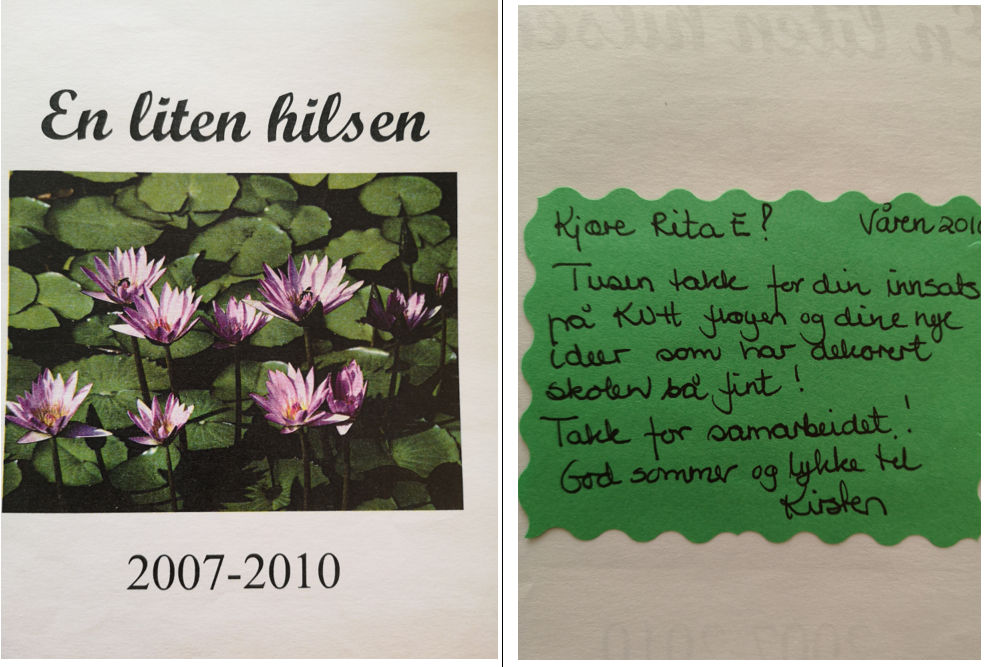 En liten hilsen
2007-2010
Kjære Rita E!
Våren 2010
Tusen takk for din innsats
på K&H fløyen og dine nye
ideer som har dekorert
skolen så fint!
Takk for samarbeidet!
God sommer og lykke til
Kirsten